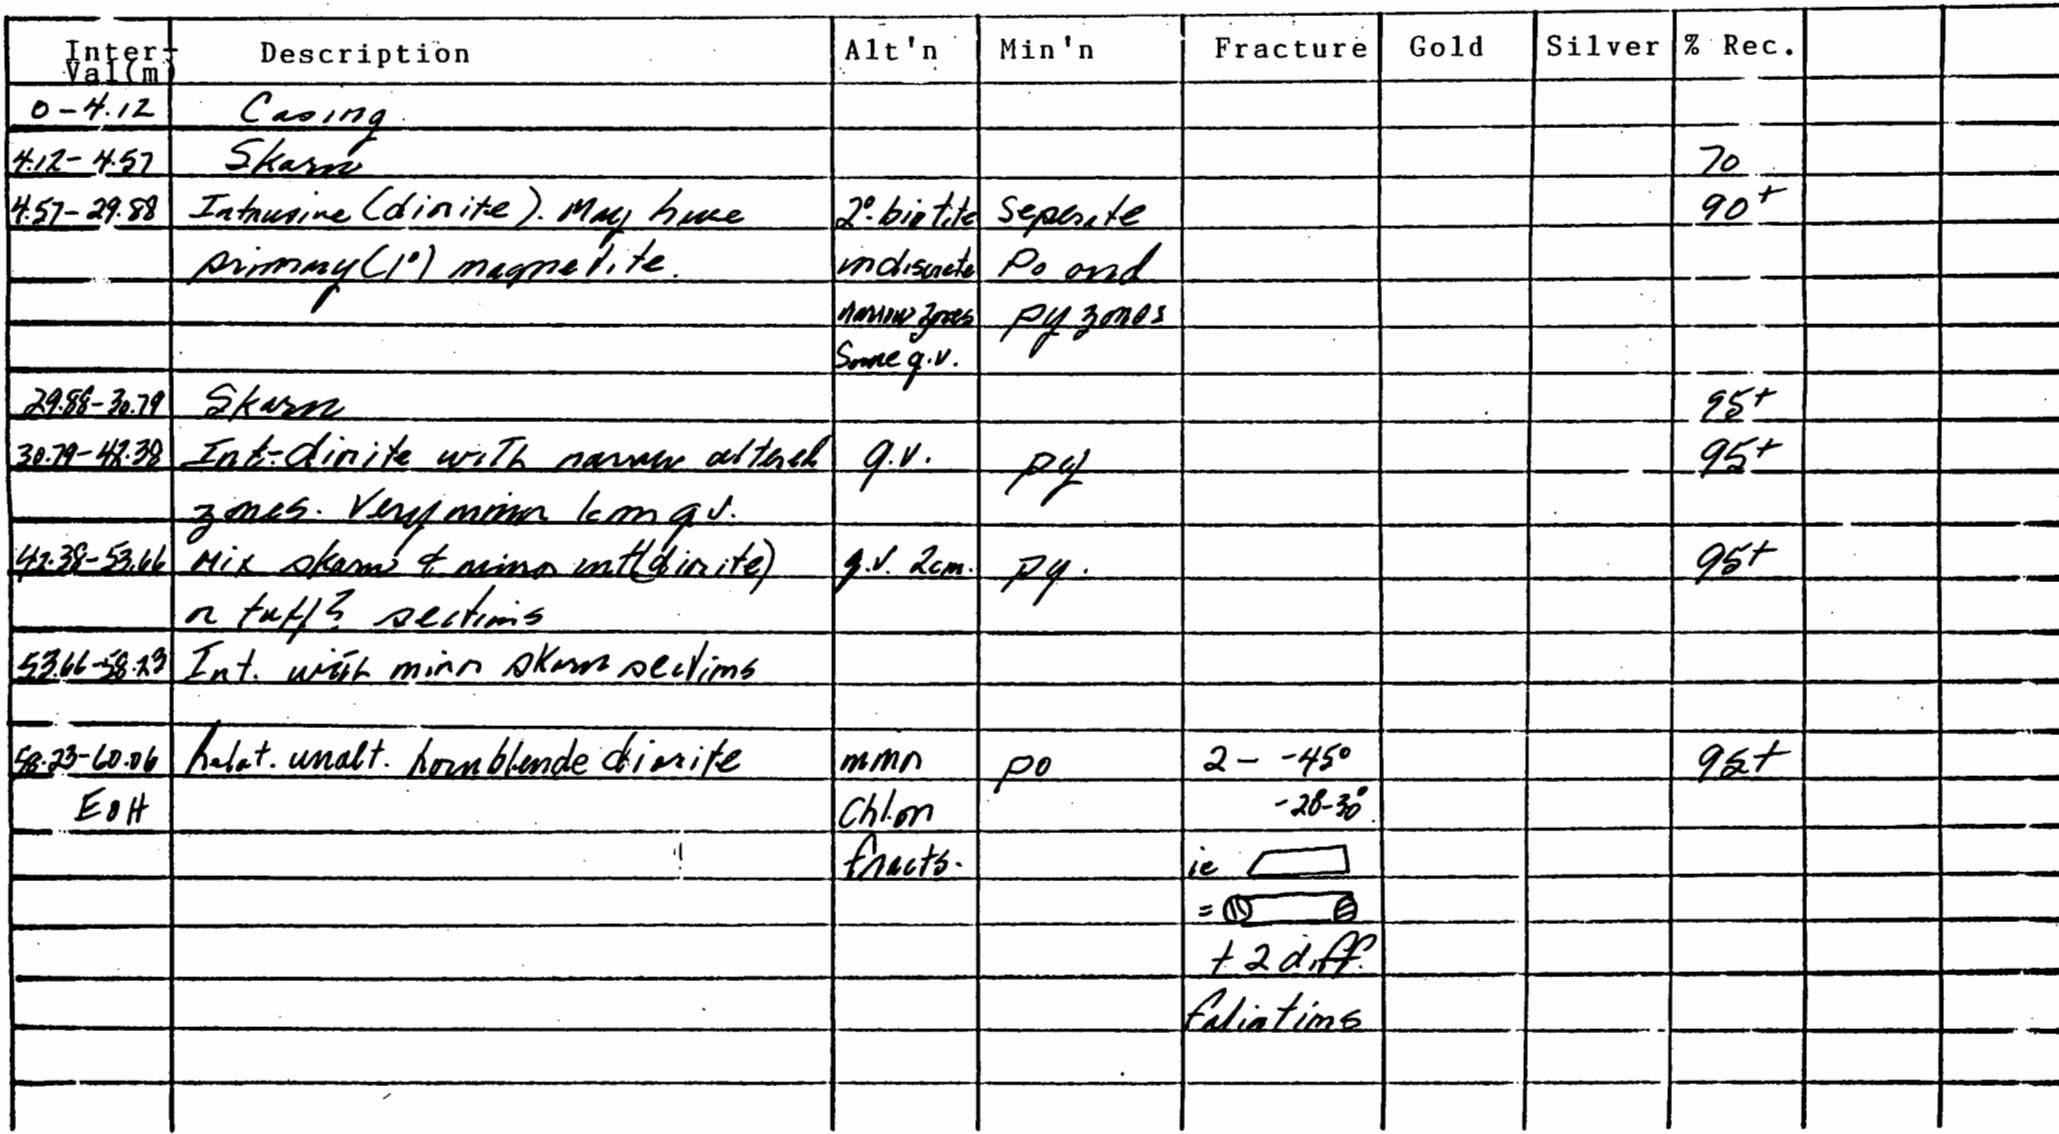 Inter- Description Alt'n Min'n Fracture Gold Silver % Rec.
Val(m)
0-4.12 Casing
4.12-4.57 Skarn 70
4.57-29.88 Intrusive (diorite). May have 2° biotite Seperate 90+
primary (1°) magnetite. in discrete Po and
narrow zones py zones
Some q.v.
29.88-30.79 Skarn 95+
30.79-42.38 Int-diorite with narrow altered q.v. py 95+
zones. Very minor 1cm q.v.
42.38-53.66 Mix skarn & minor int (diorite) q.v. 2cm. py. 95+
or tuff? sections
53.66-58.23 Int. with minor skarn sections
58.23-60.06 Relat. unalt. hornblende diorite minor po 2- -45° 95+
EOH Chl.on -28-30°
fracts. ie
=
+ 2 diff.
foliations